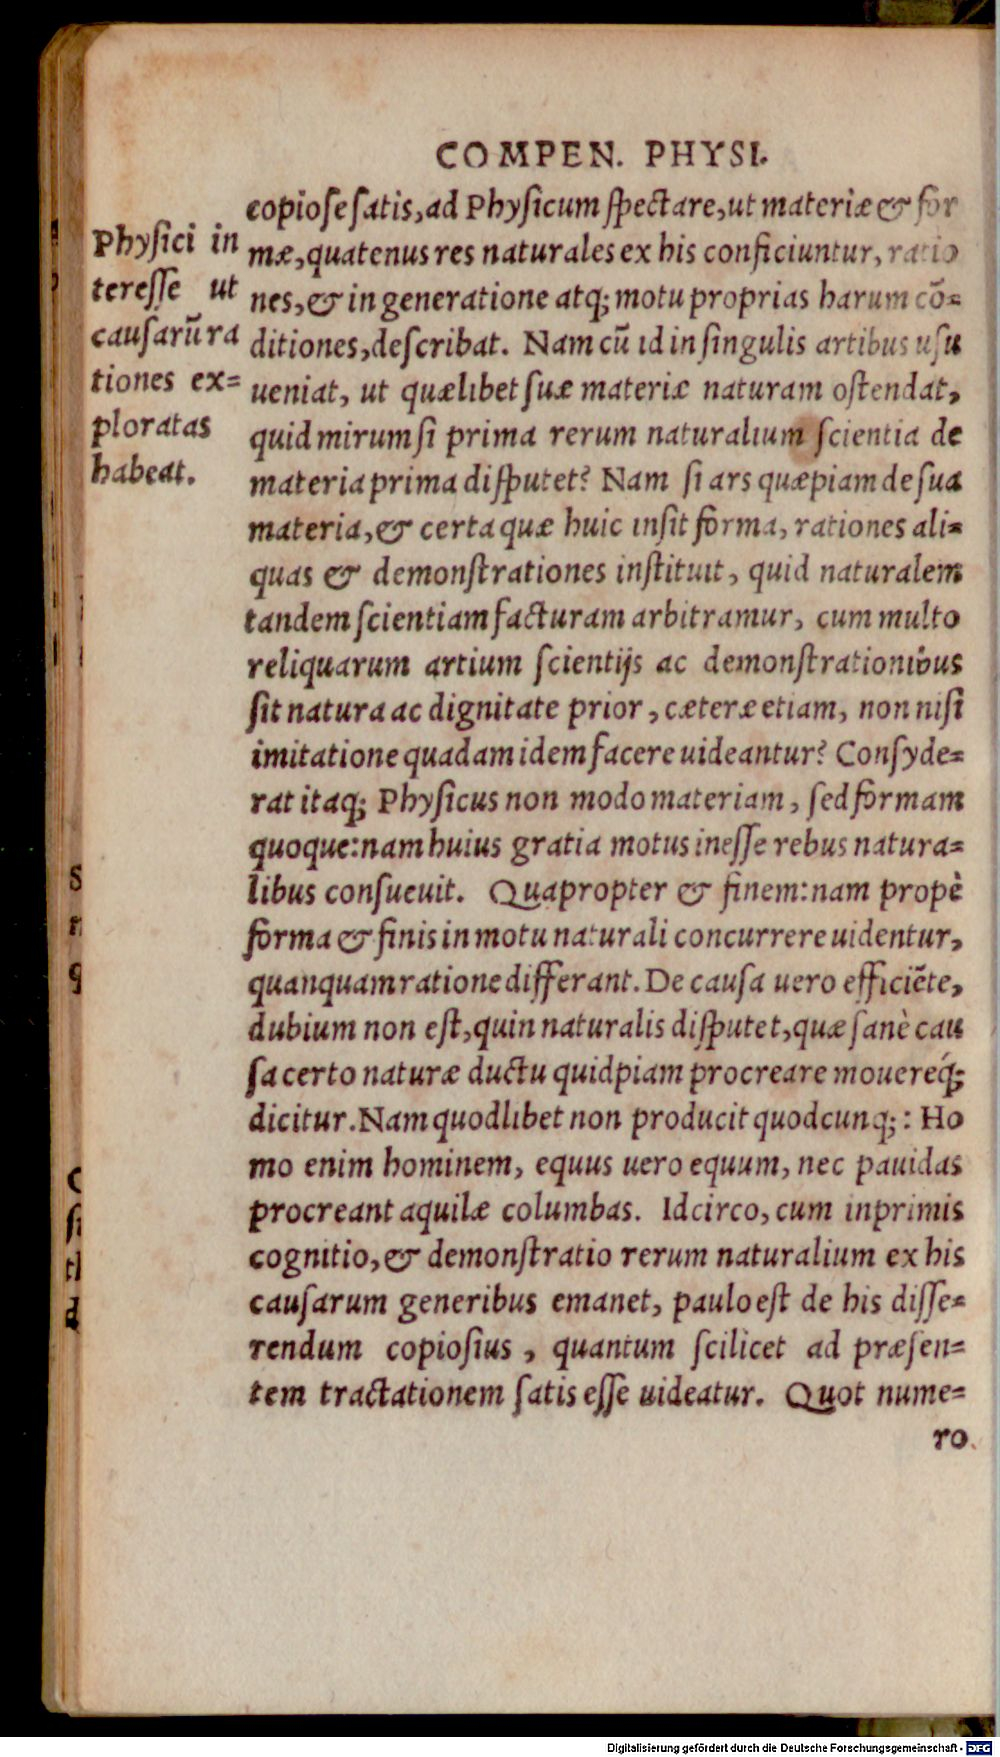 COMPEN. PHYSI.
copioſe ſatis, ad Phyſicum ſpectare, ut materiæ & for
mæ, quatenus res naturales ex his conficiuntur, ratio
nes, & in generatione atq; motu proprias harum cō=
ditiones, deſcribat. Nam cū id in ſingulis artibus uſu
ueniat, ut quælibet ſuæ materiæ naturam oſtendat,
quid mirum ſi prima rerum naturalium ſcientia de
materia prima diſputet? Nam ſi ars quæpiam de ſua
materia, & certa quæ huic inſit forma, rationes ali=
quas & demonſtrationes inſtituit, quid naturalem
tandem ſcientiam facturam arbitramur, cum multo
reliquarum artium ſcientijs ac demonſtrationibus
ſit natura ac dignitate prior, cæteræ etiam, non niſi
imitatione quadam idem facere uideantur? Conſyde=
rat itaq; Phyſicus non modo materiam, ſed formam
quoque: nam huius gratia motus ineſſe rebus natura=
libus conſueuit. Quapropter & finem: nam propè
forma & finis in motu naturali concurrere uidentur,
quanquam ratione differant. De cauſa uero efficiēte,
dubium non eſt, quin naturalis diſputet, quæ ſanè cau
ſa certo naturæ ductu quidpiam procreare mouereq́;
dicitur. Nam quodlibet non producit quodcunq;: Ho
mo enim hominem, equus uero equum, nec pauidas
procreant aquilæ columbas. Idcirco, cum inprimis
cognitio, & demonſtratio rerum naturalium ex his
cauſarum generibus emanet, paulo eſt de his diſſe=
rendum copioſius, quantum ſcilicet ad præſen=
tem tractationem ſatis eſſe uideatur. Quot nume=
ro
Phyſici in
tereſſe ut
cauſarū ra
tiones ex=
ploratas
habeat.
Digitalisierung gefördert durch die Deutsche Forschungsgemeinschaft - DFG